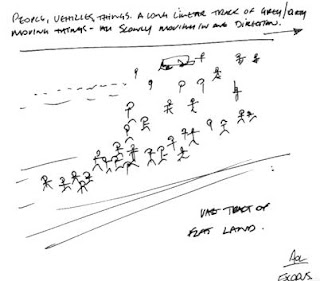 PEOPLE, VEHICLES, THINGS. A LONG LINEAR TRACK OF GREY/
MOVING THINGS - ALL SLOWLY MOVING IN ONE DIRECTION.
TRACT OF
FLAT LAND.
AOL
EXODUS